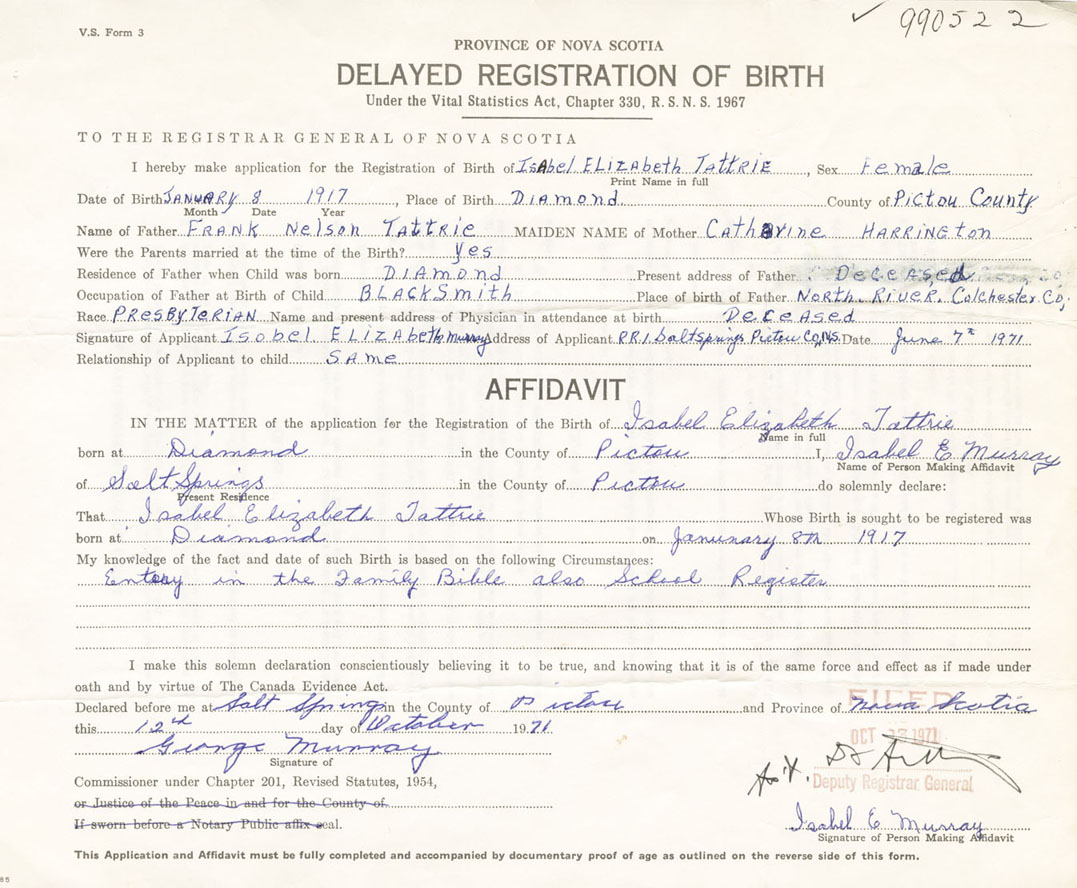 V.S. Form 3
✓ 990522
PROVINCE OF NOVA SCOTIA
DELAYED REGISTRATION OF BIRTH
Under the Vital Statistics Act, Chapter 330, R. S. N. S. 1967
TO THE REGISTRAR GENERAL OF NOVA SCOTIA
I hereby make application for the Registration of Birth of IsAbel ELIZAbeth TATTRIE, Sex Female
Print Name in full
Date of Birth JANUARY 8 1917, Place of Birth DIAmond County of PICTou County
Month Date Year
Name of Father FRANK Nelson TATTRIE MAIDEN NAME of Mother CathArine HARRINGTON
Were the Parents married at the time of the Birth? yes
Residence of Father when Child was born DIAmond Present address of Father DeceAsed
Occupation of Father at Birth of Child BLACKSmith Place of birth of Father NORTH RIVER. Colchester Co;
Race PRESBYTERIAN Name and present address of Physician in attendance at birth DeceASed
Signature of Applicant Isobel ELIZAbeth Murray Address of Applicant R.R.1. Saltsprings Pictou Co, N.S. Date June 7th 1971
Relationship of Applicant to child SAme
AFFIDAVIT
IN THE MATTER of the application for the Registration of the Birth of Isabel Elizabeth Tattrie
Name in full
born at Diamond in the County of Pictou I, Isabel E Murray
Name of Person Making Affidavit
of Salt Springs in the County of Pictou do solemnly declare:
Present Residence
That Isabel Elizabeth Tattrie Whose Birth is sought to be registered was
born at Diamond on Janunary 8th 1917
My knowledge of the fact and date of such Birth is based on the following Circumstances:
Entery in the Family Bible also School Register
I make this solemn declaration conscientiously believing it to be true, and knowing that it is of the same force and effect as if made under
oath and by virtue of The Canada Evidence Act.
FILED
Declared before me at Salt Springs in the County of Pictou and Province of Nova Scotia
this 12th day of October 1971
OCT 1971
George Murray
Signature of
Deputy Registrar General
Commissioner under Chapter 201, Revised Statutes, 1954,
or Justice of the Peace in and for the County of
If sworn before a Notary Public affix seal.
Isabel E Murray
Signature of Person Making Affidavit
This Application and Affidavit must be fully completed and accompanied by documentary proof of age as outlined on the reverse side of this form.
85